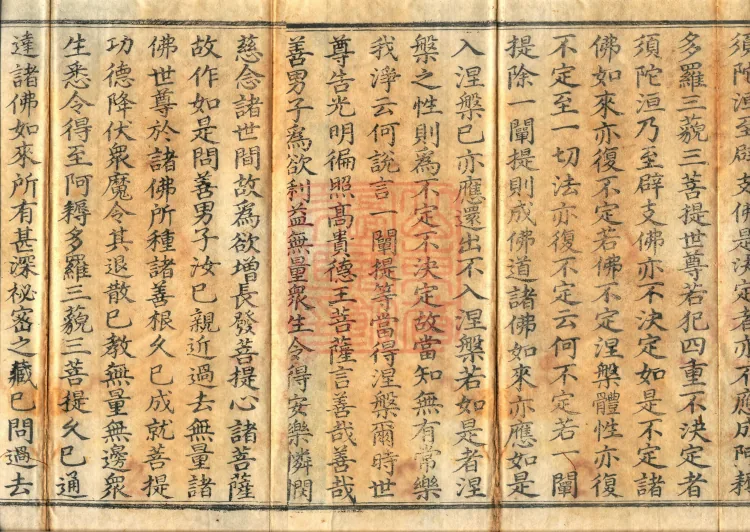 須陀洹至辟支佛是決定者亦不應成阿耨
多羅三藐三菩提世尊若犯四重不決定者
須陀洹乃至辟支佛亦不決定如是不定諸
佛如來亦復不定若佛不定涅槃體性亦復
不定至一切法亦復不定云何不定若一闡
提除一闡提則成佛道諸佛如來亦應如是
入涅槃已亦應還出不入涅槃若如是者涅
槃之性則為不定不決定故當知無有常樂
我淨云何說言一闡提等當得涅槃爾時世
尊告光明徧照高貴德王菩薩言善哉善哉
善男子為欲利益無量衆生令得安樂憐愍
慈念諸世間故為欲增長發菩提心諸菩薩
故作如是問善男子汝已親近過去無量諸
佛世尊於諸佛所種諸善根久已成就菩提
功德降伏衆魔令其退散已教無量無邊衆
生悉令得至阿耨多羅三藐三菩提久已通
達諸佛如來所有甚深祕密之藏已問過去